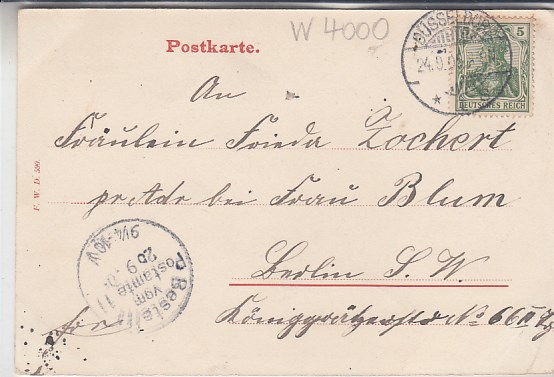 W 4000
Postkarte.
DÜSSELDORF
24.9.0
5
DEUTSCHES REICH
An
Fräulein Frieda Zochert
pr Adr bei Frau Blum
Berlin S. W.
Königgrätzerstr No 66 II
F. W. D. 590.
Bestellt
vom
Postamte 11
20 9
9¼-10V